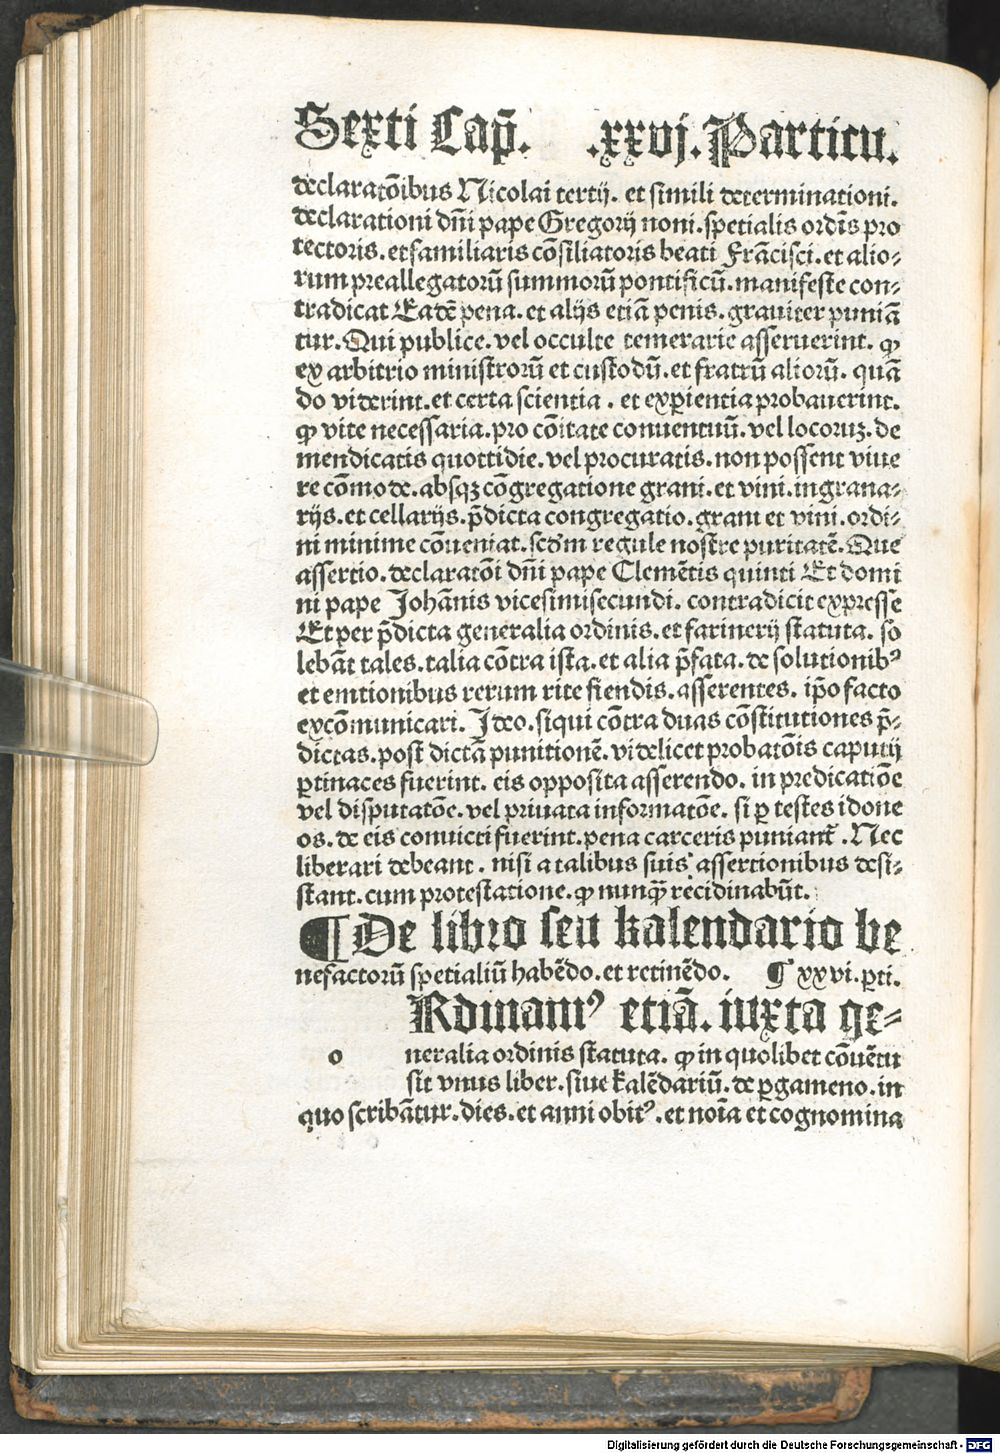 Sexti Cap̄. .xxvj. Particu.
declaratōibus Nicolai tertij. et simili determinationi.
declarationi dn̄i pape Gregorij noni. spetialis ordīs pro
tectoris. et familiaris cōsiliatoris beati Frācisci. et alio⸗
rum preallegatorū summorū pontificū. manifeste con⸗
tradicat Eadē pena. et alijs etiā penis. grauiter puniā
tur. Qui publice. vel occulte temerarie asseruerint. ꝙ
ex arbitrio ministrorū et custodū. et fratrū aliorū. quā
do viderint. et certa scientia. et exꝑientia probauerint.
ꝙ vite necessaria. pro cōitate conuentuū. vel locoruꝫ. de
mendicatis quottidie. vel procuratis. non possent viue
re cōmode. absqꝫ cōgregatione grani. et vini. in grana⸗
rijs. et cellarijs. p̄dicta congregatio. grani et vini. ordi⸗
ni minime cōueniat. scd̄m regule nostre puritatē. Que
assertio. declaratōi dn̄i pape Clemētis quinti Et domi
ni pape Johānis vicesimisecundi. contradicit expresse
Et per p̄dicta generalia ordinis. et farinerij statuta. so
lebāt tales. talia cōtra ista. et alia p̄fata. de solutionibꝰ
et emtionibus rerum rite fiendis. asserentes. ip̄o facto
excōmunicari. Ideo. siqui cōtra duas cōstitutiones p̄⸗
dictas. post dictā punitionē. videlicet probatōis caputij
ꝑtinaces fuerint. eis opposita asserendo. in predicatiōe
vel disputatōe. vel priuata informatōe. si ꝑ testes idone
os. de eis conuicti fuerint. pena carceris puniant̄. Nec
liberari debeant. nisi a talibus suis assertionibus desi⸗
stant. cum protestatione. ꝙ nunqꝫ̄ recidinabūt.
¶ De libro seu kalendario be
nefactorū spetialiū habēdo. et retinēdo. ¶ xxvi. ꝑti.
Rdinamꝰ etiā. iuxta ge⸗
o neralia ordinis statuta. ꝙ in quolibet cōuētu
sit vnus liber. siue kalēdariū. de ꝑgameno. in
quo scribātur. dies. et anni obitꝰ. et noīa et cognomina
Digitalisierung gefördert durch die Deutsche Forschungsgemeinschaft - DFG